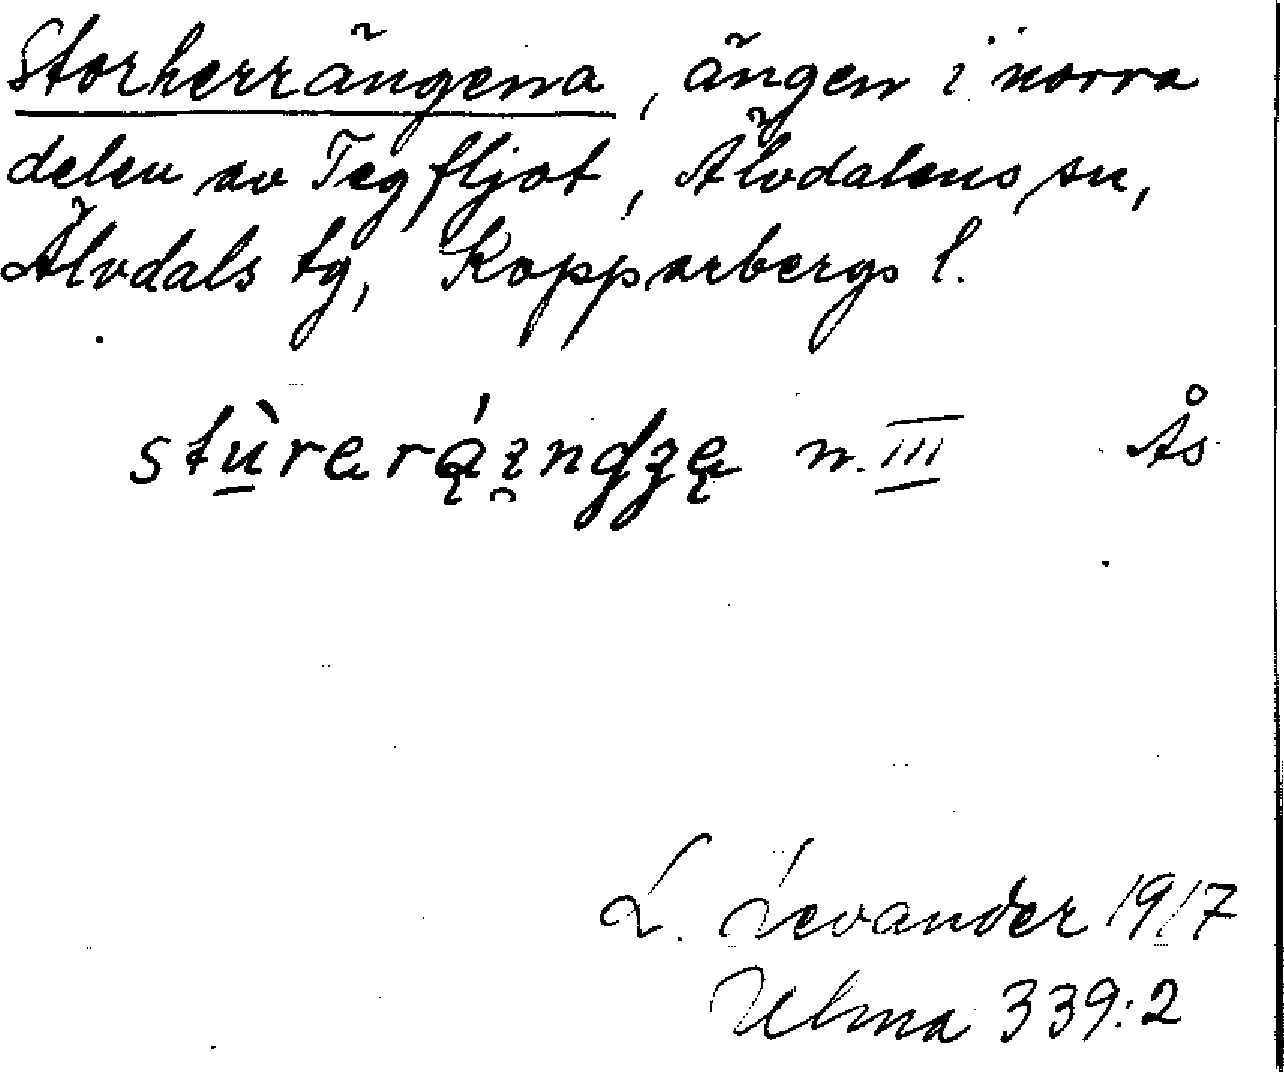 Storherrängena, ängen i norra
delen av Tegfljot, Älvdalens sn,
Älvdals tg, Kopparbergs l.
stù̱rerą́ı̯ndʒę n. III Ås
L. Levander 1917
Ulma 339:2